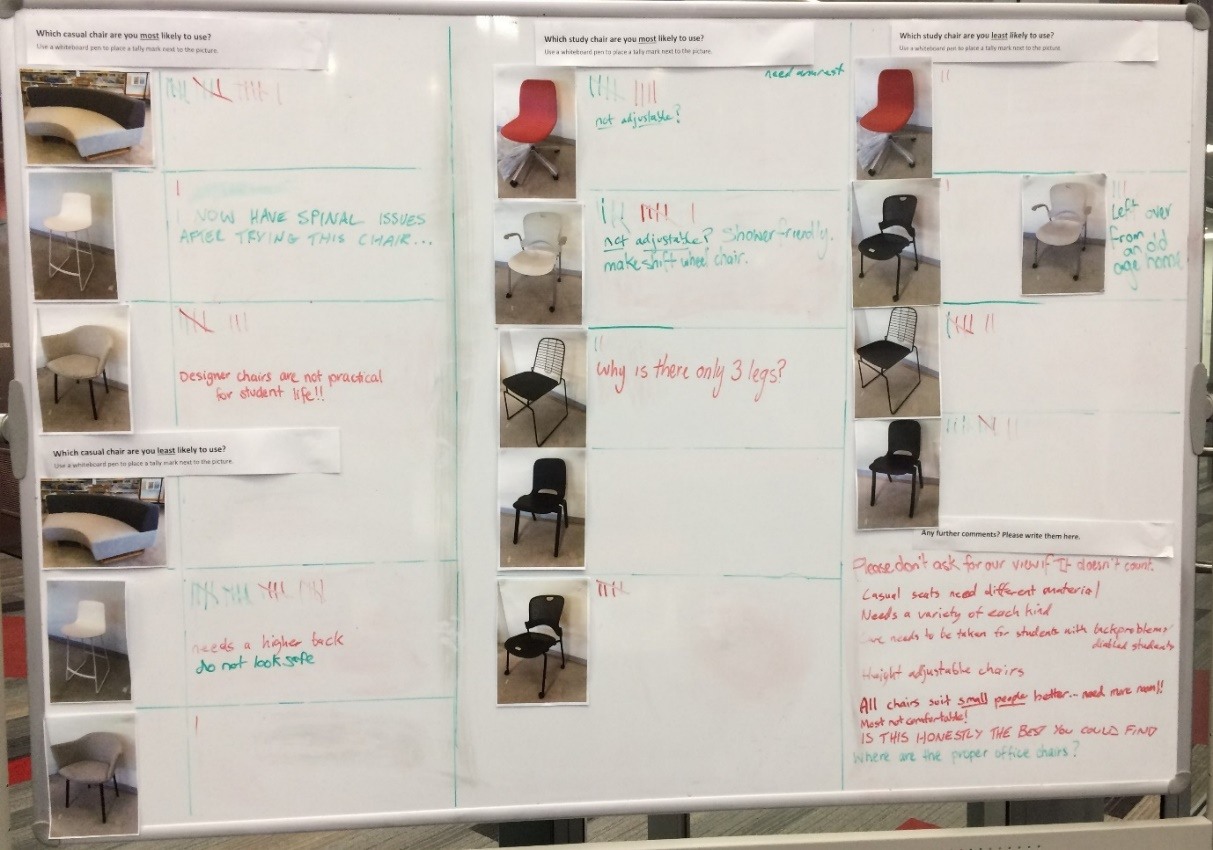 Which casual chair are you most likely to use?
Use a whiteboard pen to place a tally mark next to the picture.
I NOW HAVE SPINAL ISSUES
AFTER TRYING THIS CHAIR...
Designer chairs are not practical
for student life!!
Which casual chair are you least likely to use?
Use a whiteboard pen to place a tally mark next to the picture.
needs a higher back
do not look safe
Which study chair are you most likely to use?
Use a whiteboard pen to place a tally mark next to the picture.
need armrest
not adjustable?
not adjustable? Shower friendly.
makeshift wheel chair.
Why is there only 3 legs?
Which study chair are you least likely to use?
Use a whiteboard pen to place a tally mark next to the picture.
Left over
from
an old
age home
Any further comments? Please write them here.
Please don't ask for our view if It doesn't count.
Casual seats need different material
Needs a variety of each kind
needs to be taken for students with backproblems/
disabled students
Height adjustable chairs
All chairs suit small people better.. need more room!!
Most not comfortable!
IS THIS HONESTLY THE BEST YOU COULD FIND
Where are the proper office chairs?